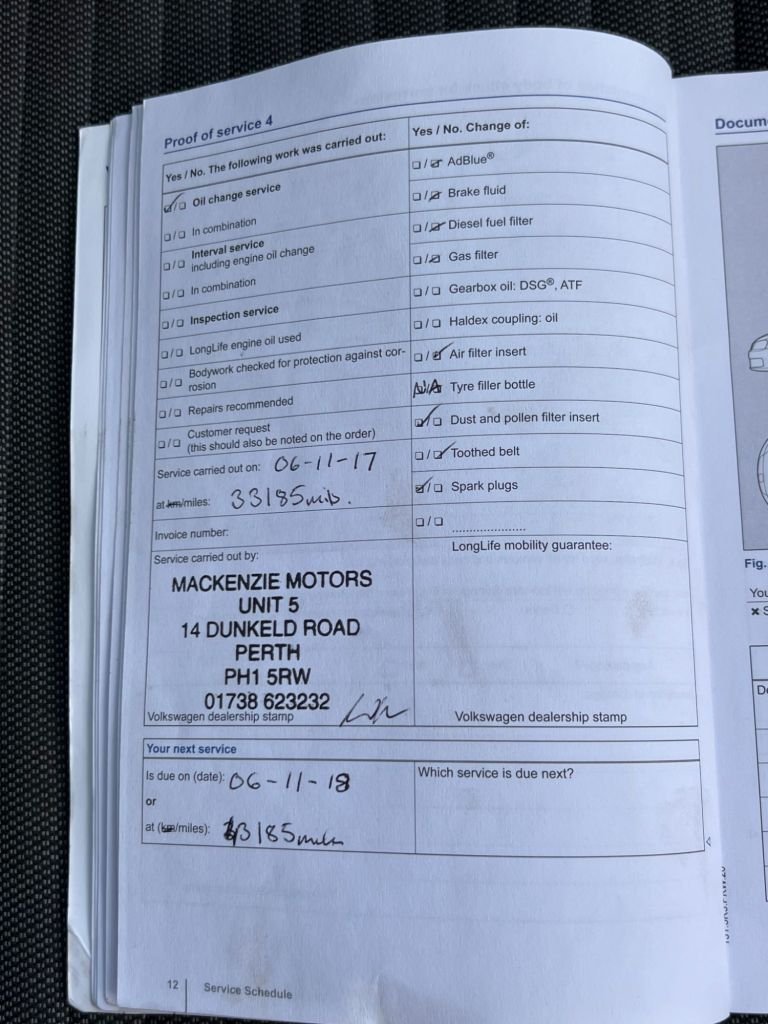 Proof of service 4
Yes / No. The following work was carried out:
☑/☐ Oil change service
☐/☐ In combination
☐/☐ Interval service
including engine oil change
☐/☐ In combination
☐/☐ Inspection service
☐/☐ LongLife engine oil used
☐/☐ Bodywork checked for protection against cor-
rosion
☐/☐ Repairs recommended
☐/☐ Customer request
(this should also be noted on the order)
Service carried out on: 06-11-17
at km/miles: 33185
Invoice number:
Service carried out by:
MACKENZIE MOTORS
UNIT 5
14 DUNKELD ROAD
PERTH
PH1 5RW
01738 623232
Volkswagen dealership stamp
Yes / No. Change of:
☐/☑ AdBlue®
☐/☑ Brake fluid
☐/☑ Diesel fuel filter
☐/☑ Gas filter
☐/☐ Gearbox oil: DSG®, ATF
☐/☐ Haldex coupling: oil
☐/☑ Air filter insert
N/A Tyre filler bottle
☑/☐ Dust and pollen filter insert
☐/☑ Toothed belt
☑/☐ Spark plugs
☐/☐ .....................
LongLife mobility guarantee:
Volkswagen dealership stamp
Your next service
Is due on (date): 06-11-18
or
at (km/miles): 3185 miles
Which service is due next?
12 Service Schedule
Docum
Fig.
You